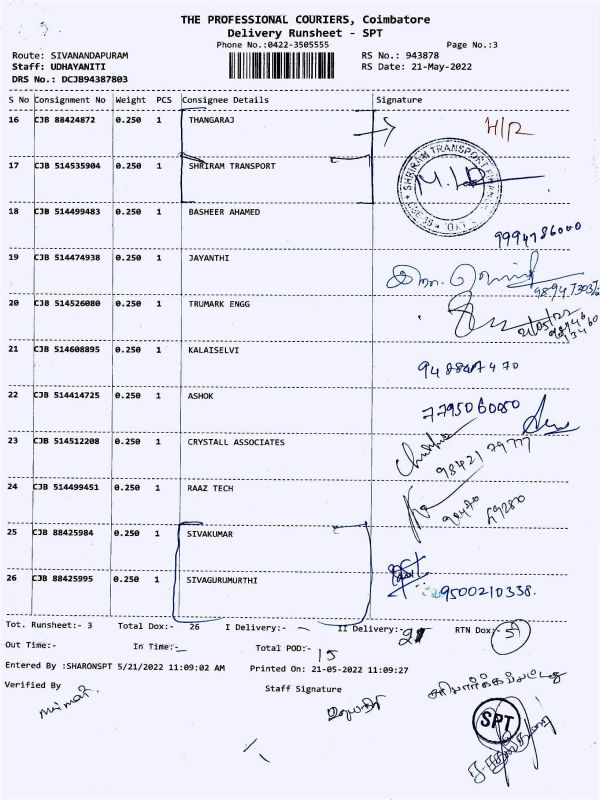 THE PROFESSIONAL COURIERS, Coimbatore
Delivery Runsheet - SPT
Phone No.:0422-3505555 Page No.:3
Route: SIVANANDAPURAM RS No.: 943878
Staff: UDHAYANITI RS Date: 21-May-2022
DRS No.: DCJB94387803
S No Consignment No Weight PCS Consignee Details Signature
16 CJB 88424872 0.250 1 THANGARAJ H/R
17 CJB 514535904 0.250 1 SHRIRAM TRANSPORT
SHRIRAM TRANSPORT
18 CJB 514499483 0.250 1 BASHEER AHAMED
9994786000
19 CJB 514474938 0.250 1 JAYANTHI
20 CJB 514526080 0.250 1 TRUMARK ENGG
21 CJB 514608895 0.250 1 KALAISELVI
22 CJB 514414725 0.250 1 ASHOK 7795060050
23 CJB 514512208 0.250 1 CRYSTALL ASSOCIATES
24 CJB 514499451 0.250 1 RAAZ TECH
25 CJB 88425984 0.250 1 SIVAKUMAR
26 CJB 88425995 0.250 1 SIVAGURUMURTHI 9500210338.
Tot. Runsheet:- 3 Total Dox:- 26 I Delivery:- II Delivery:- 21 RTN Dox:- 5
Out Time:- In Time:- Total POD:- 15
Entered By :SHARONSPT 5/21/2022 11:09:02 AM Printed On: 21-05-2022 11:09:27
Verified By Staff Signature
சரிபார்க்கப்பட்டது
உதயநிதி
SPT